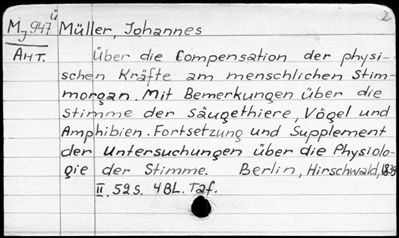 2
My 947 ü Müller, Johannes
Aнт. Über die Compensation der physi-
schen Kräfte am menschlichen Stim-
morgan. Mit Bemerkungen über die
Stimme der säugethiere, Vögel und
Amphibien. Fortsetzung und Supplement
der Untersuchungen über die Physiolo-
gie der Stimme. Berlin, Hirschwald, 1839
II. 52 S. 4 BL. Taf.